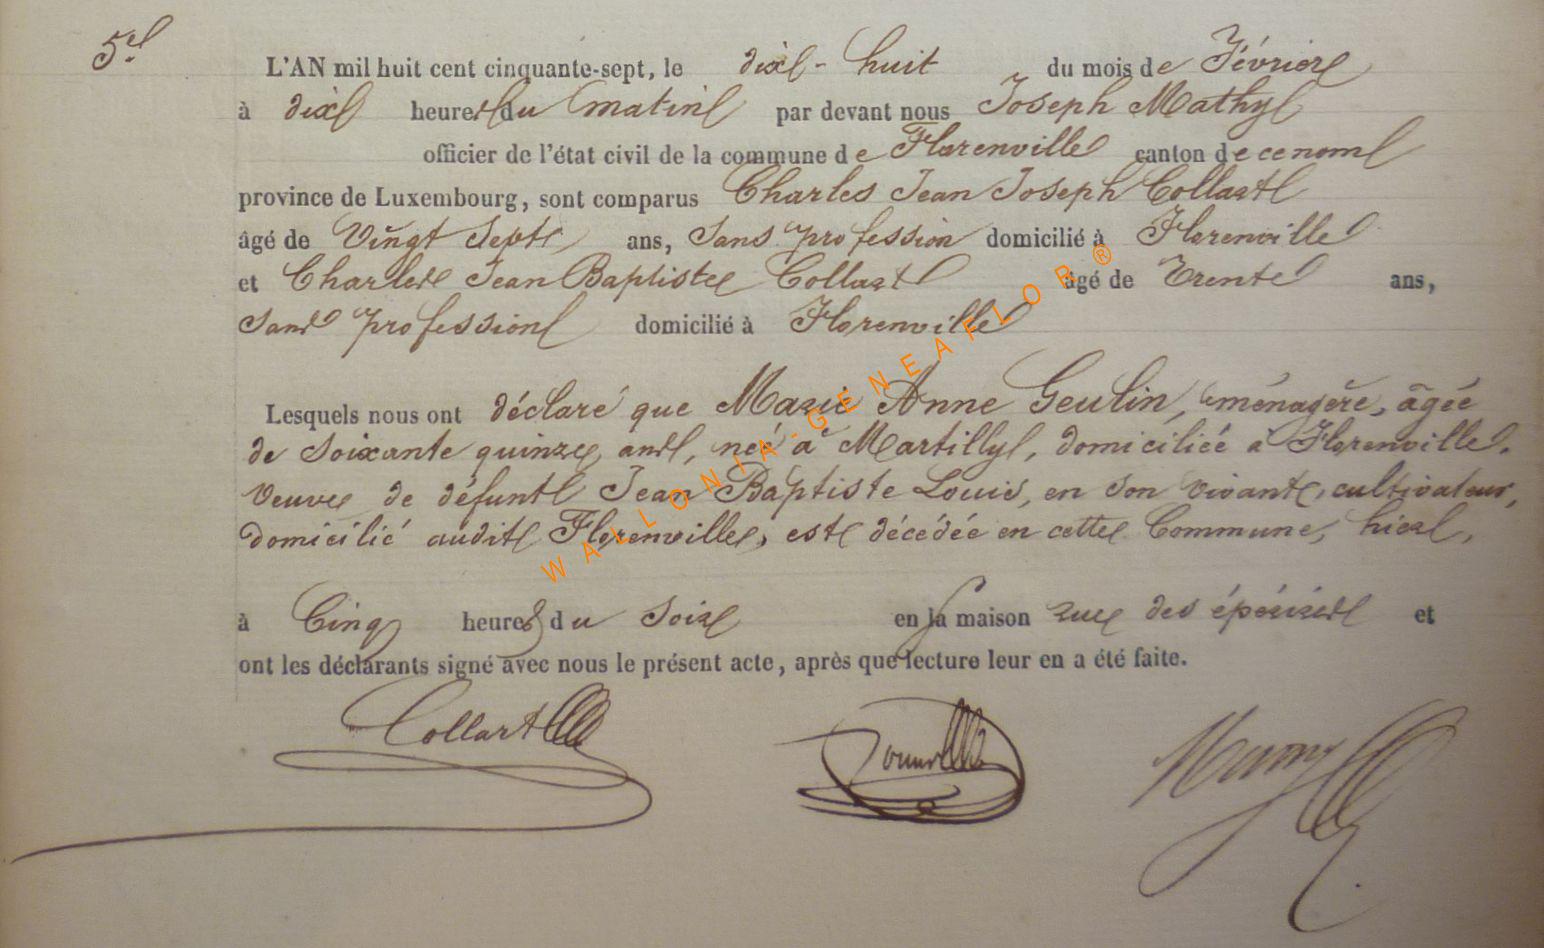 5e
L'AN mil huit cent cinquante-sept, le dix-huit du mois de Février
à dix heures du matin par devant nous Joseph Mathy
officier de l'état civil de la commune de Florenville canton de ce nom
province de Luxembourg, sont comparus Charles Jean Joseph Collart
âgé de Vingt Sept ans, Sans profession domicilié à Florenville
et Charles Jean Baptiste Collart âgé de Trente ans,
Sans profession domicilié à Florenville
Lesquels nous ont déclaré que Marie Anne Geulin, ménagère, âgée
de Soixante quinze ans, née à Martilly, domiciliée à Florenville,
veuve de défunt Jean Baptiste Louis, en son vivant, cultivateur,
domicilié audit Florenville, est décédée en cette Commune, hier,
à Cinq heures du Soir en la maison rue des épérires et
ont les déclarants signé avec nous le présent acte, après que lecture leur en a été faite.
Collart
WALLONIA-GENEAFLOR®